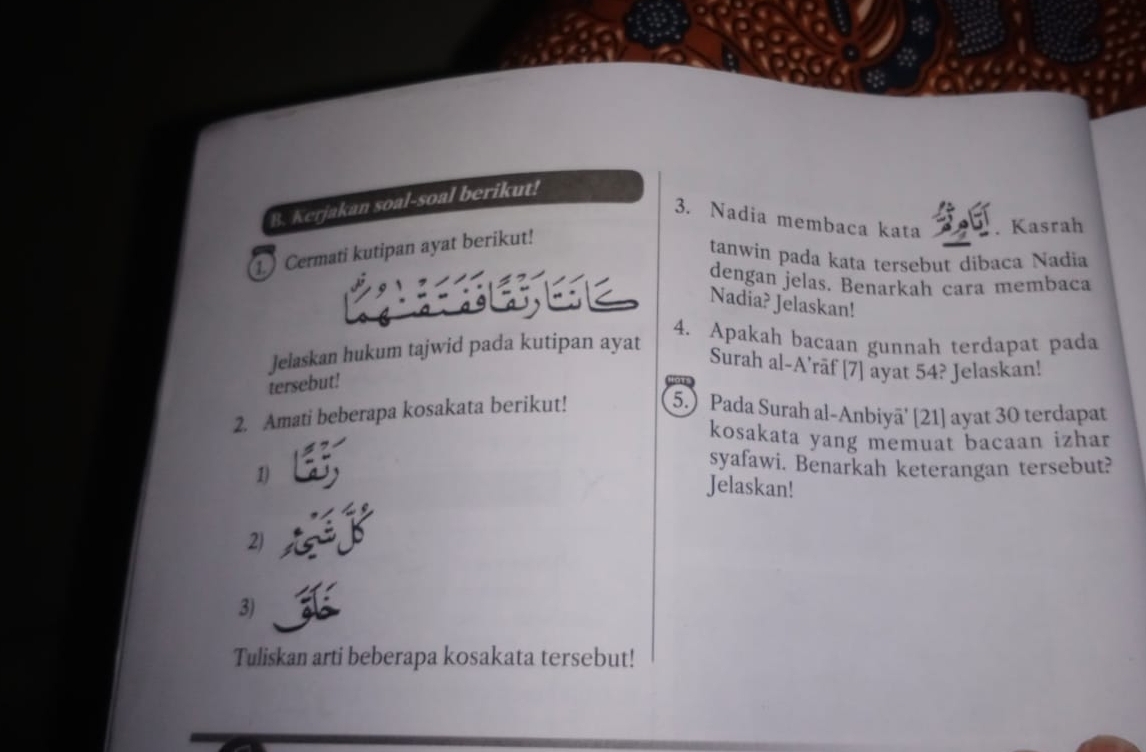 B. Kerjakan soal-soal berikut!
HOTS
1. Cermati kutipan ayat berikut!
كَانَتَا رَتْقًا فَفَتَقْنٰهُمَاۗ
Jelaskan hukum tajwid pada kutipan ayat
tersebut!
2. Amati beberapa kosakata berikut!
1) رَتْقًا
2) كُلَّ شَيْءٍ
3) خَلَقَ
Tuliskan arti beberapa kosakata tersebut!
3. Nadia membaca kata اَيَّامٍ ثُمَّ. Kasrah
tanwin pada kata tersebut dibaca Nadia
dengan jelas. Benarkah cara membaca
Nadia? Jelaskan!
4. Apakah bacaan gunnah terdapat pada
Surah al-A'rāf [7] ayat 54? Jelaskan!
HOTS
5. Pada Surah al-Anbiyā' [21] ayat 30 terdapat
kosakata yang memuat bacaan izhar
syafawi. Benarkah keterangan tersebut?
Jelaskan!